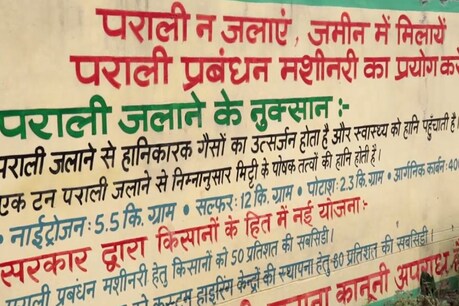 पराली न जलाएं, जमीन में मिलायें
पराली प्रबंधन मशीनरी का प्रयोग करें
पराली जलाने के नुक्सान :-
पराली जलाने से हानिकारक गैसों का उत्सर्जन होता है और स्वास्थ्य को हानि पहुंचाती है।
एक टन पराली जलाने से निम्नानुसार मिट्टी के पोषक तत्वों की हानि होती है।
• नाईट्रोजन: 5.5 कि.ग्राम • सल्फर: 12 कि.ग्राम • पोटाश: 2.3 कि.ग्राम • आर्गनिक कार्बन: 400
सरकार द्वारा किसानों के हित में नई योजना:-
पराली प्रबंधन मशीनरी हेतु किसानों को 50 प्रतिशत की सबसिडी।
कस्टम हाइरिंग केन्द्रों की स्थापना हेतु 80 प्रतिशत की सबसिडी।
कानूनी अपराध है